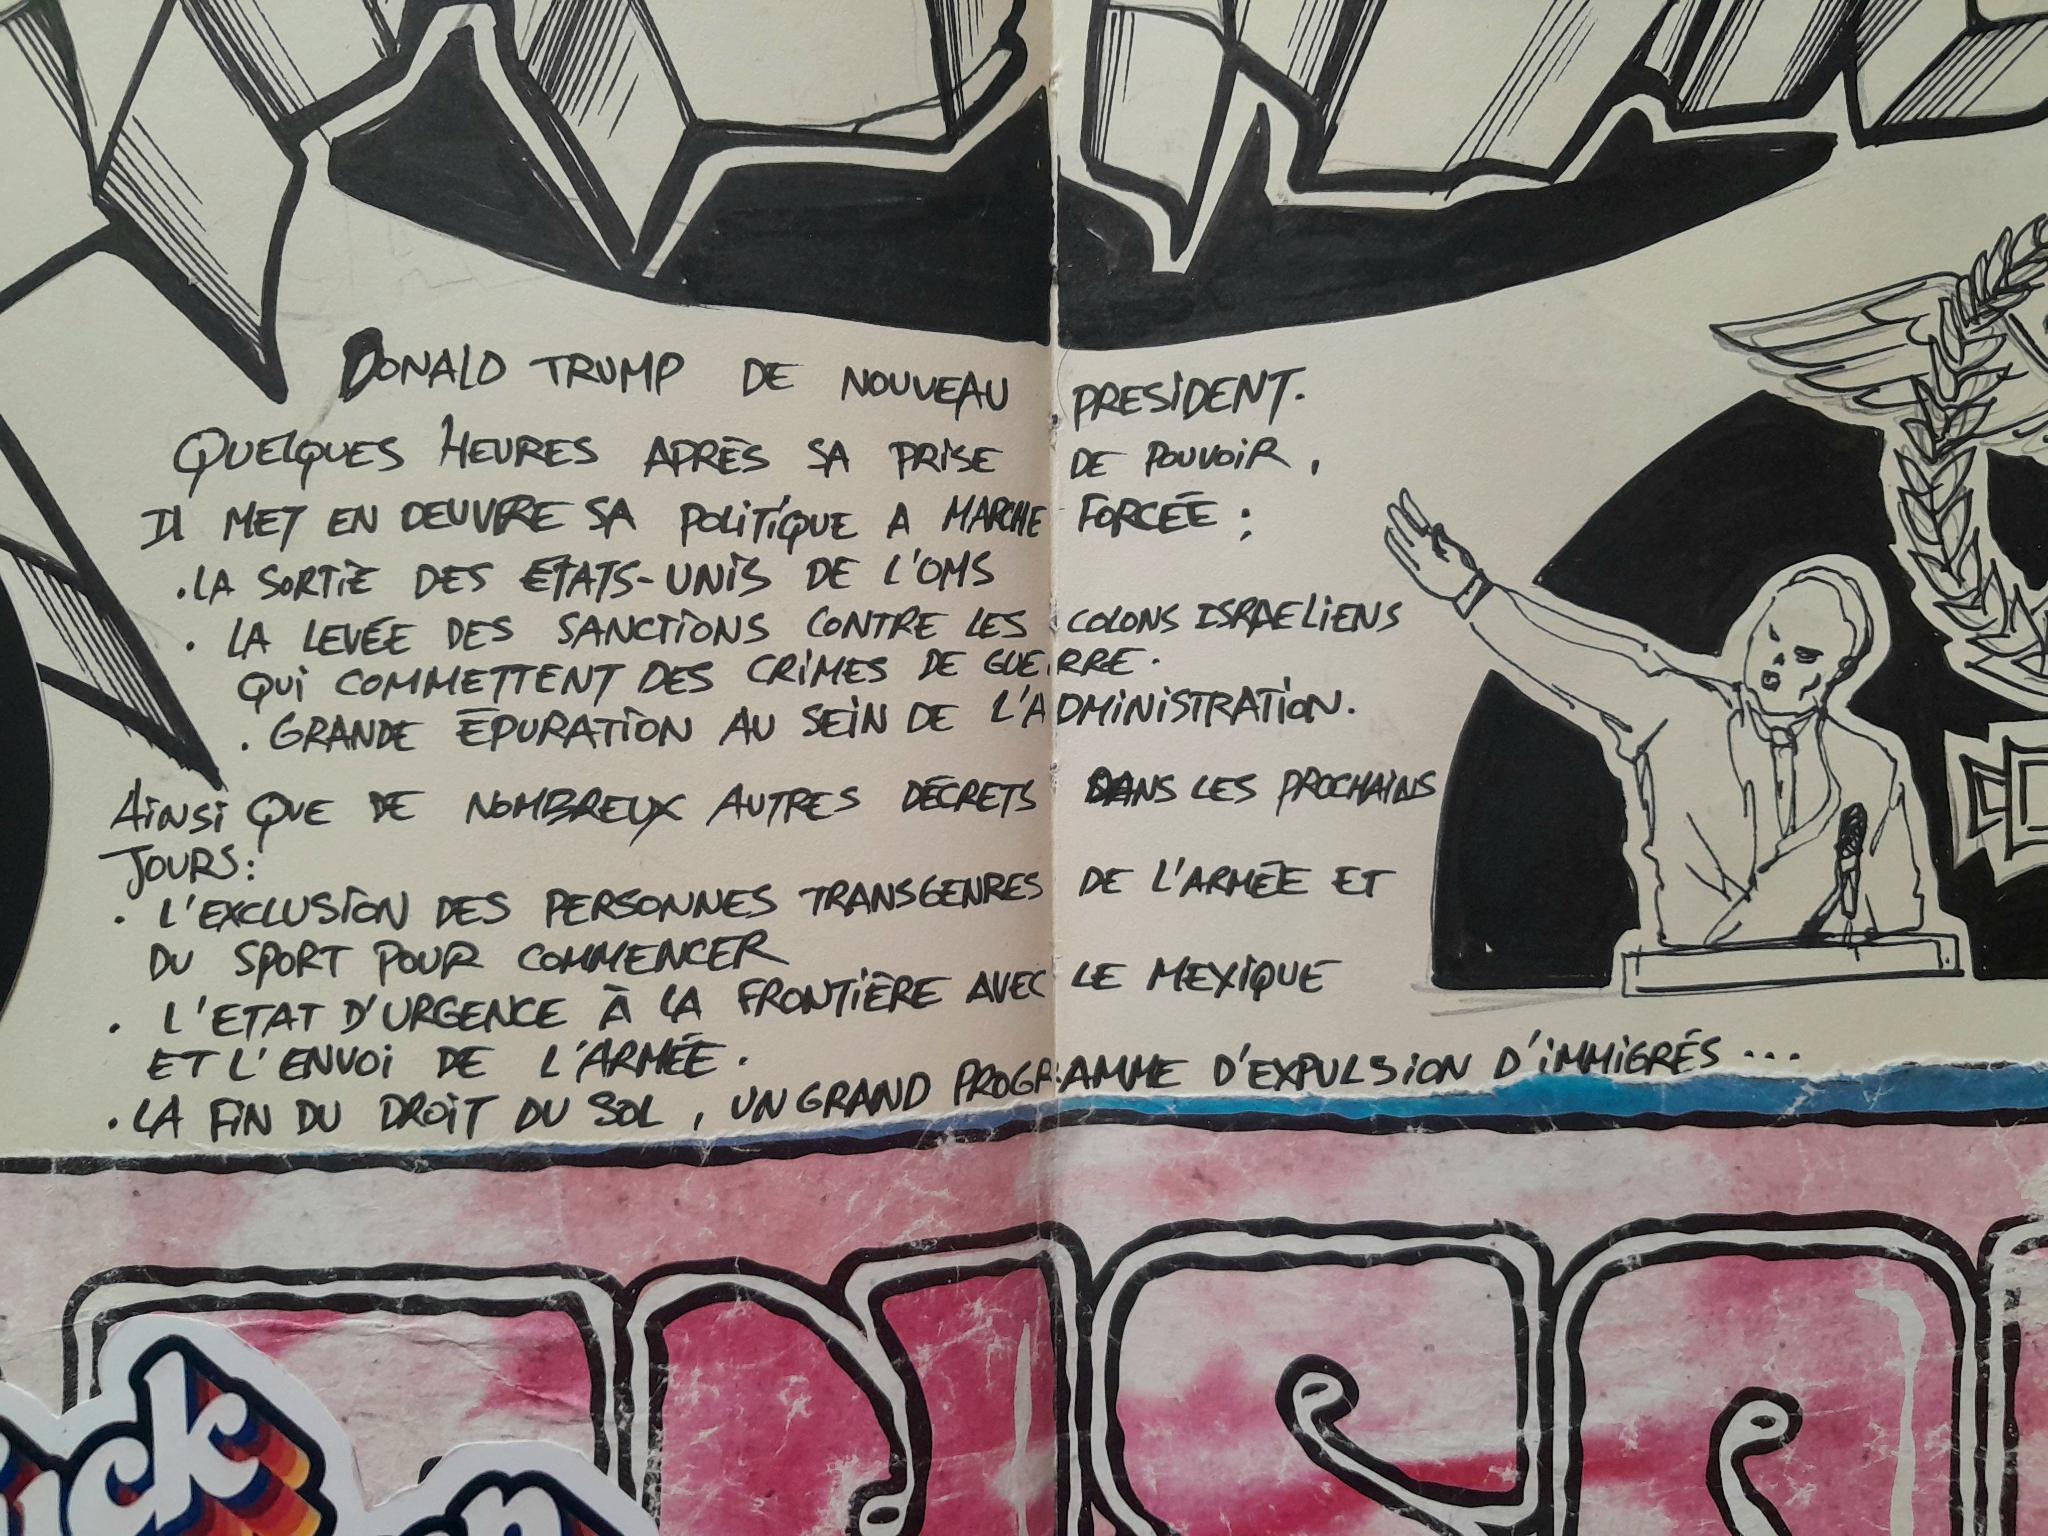 DONALD TRUMP DE NOUVEAU PRESIDENT.
QUELQUES HEURES APRÈS SA PRISE DE POUVOIR,
IL MET EN OEUVRE SA POLITIQUE A MARCHE FORCÉE :
. LA SORTIE DES ETATS-UNIS DE L'OMS
. LA LEVÉE DES SANCTIONS CONTRE LES COLONS ISRAELIENS
QUI COMMETTENT DES CRIMES DE GUERRE.
. GRANDE ÉPURATION AU SEIN DE L'ADMINISTRATION.
AINSI QUE DE NOMBREUX AUTRES DÉCRETS DANS LES PROCHAINS
JOURS:
. L'EXCLUSION DES PERSONNES TRANSGENRES DE L'ARMÉE ET
DU SPORT POUR COMMENCER
. L'ETAT D'URGENCE À LA FRONTIÈRE AVEC LE MEXIQUE
ET L'ENVOI DE L'ARMÉE.
. LA FIN DU DROIT DU SOL, UN GRAND PROGRAMME D'EXPULSION D'IMMIGRÉS ...